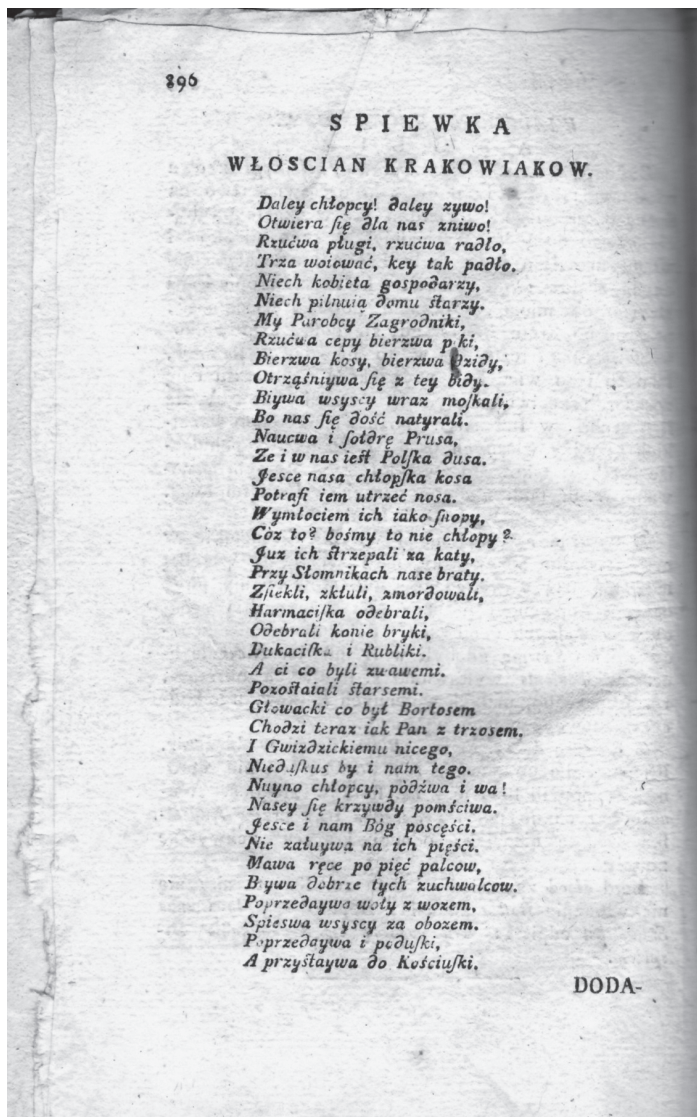 896
SPIEWKA
WŁOSCIAN KRAKOWIAKOW.
Daley chłopcy! daley zywo!
Otwiera ſię dla nas zniwo!
Rzućwa pługi, rzućwa radło,
Trza woiować, key tak padło.
Niech kobieta gospodarzy,
Niech pilnuią domu starzy.
My Parobcy Zagrodniki,
Rzućwa cepy bierzwa p ki,
Bierzwa kosy, bierzwa dzidy,
Otrząśniywa ſię z tey bidy.
Biywa wsyscy wraz moſkali,
Bo nas ſię dość natyrali.
Naucwa i ſołdrę Prusa,
Ze i w nas iest Polſka dusa.
Jesce nasa chłopſka kosa
Potrafi iem utrzeć nosa.
Wymłociem ich iako ſnopy,
Còż to? bośmy to nie chłopy?
Juz ich strzepali za katy,
Przy Słomnikach nase braty.
Zſiekli, zkłuli, zmordowali,
Harmaciſka odebrali,
Odebrali konie bryki,
Dukaciſka i Rubliki.
A ci co byli zwawemi.
Pozostaiali starsemi.
Głowacki co był Bortosem
Chodzi teraz iak Pan z trzosem.
I Gwizdzickiemu nicego,
Nieduſkus by i nam tego.
Nuyno chłopcy, pòdźwa i wa!
Nasey ſię krzywdy pomściwa.
Jesce i nam Bóg poscęści.
Nie załuywa na ich pięści.
Mawa ręce po pięć palcow,
Biywa dobrze tych zuchwalcow.
Poprzedaywa woły z wozem,
Spieswa wsyscy za obozem.
Poprzedaywa i poduſki,
A przystaywa do Kościuſki.
DODA-